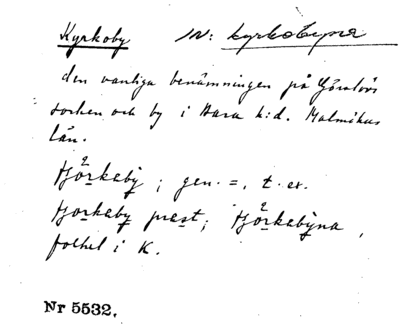 Kyrkoby IN: kyrkobyna
den vanliga benämningen på Görslövs
socken och by i Bara h:d. Malmöhus
län.
tjörkabỳ; gen. =, t. ex.
tjorkaby præst; tjörkabỳna,
folket i K.
Nr 5532.